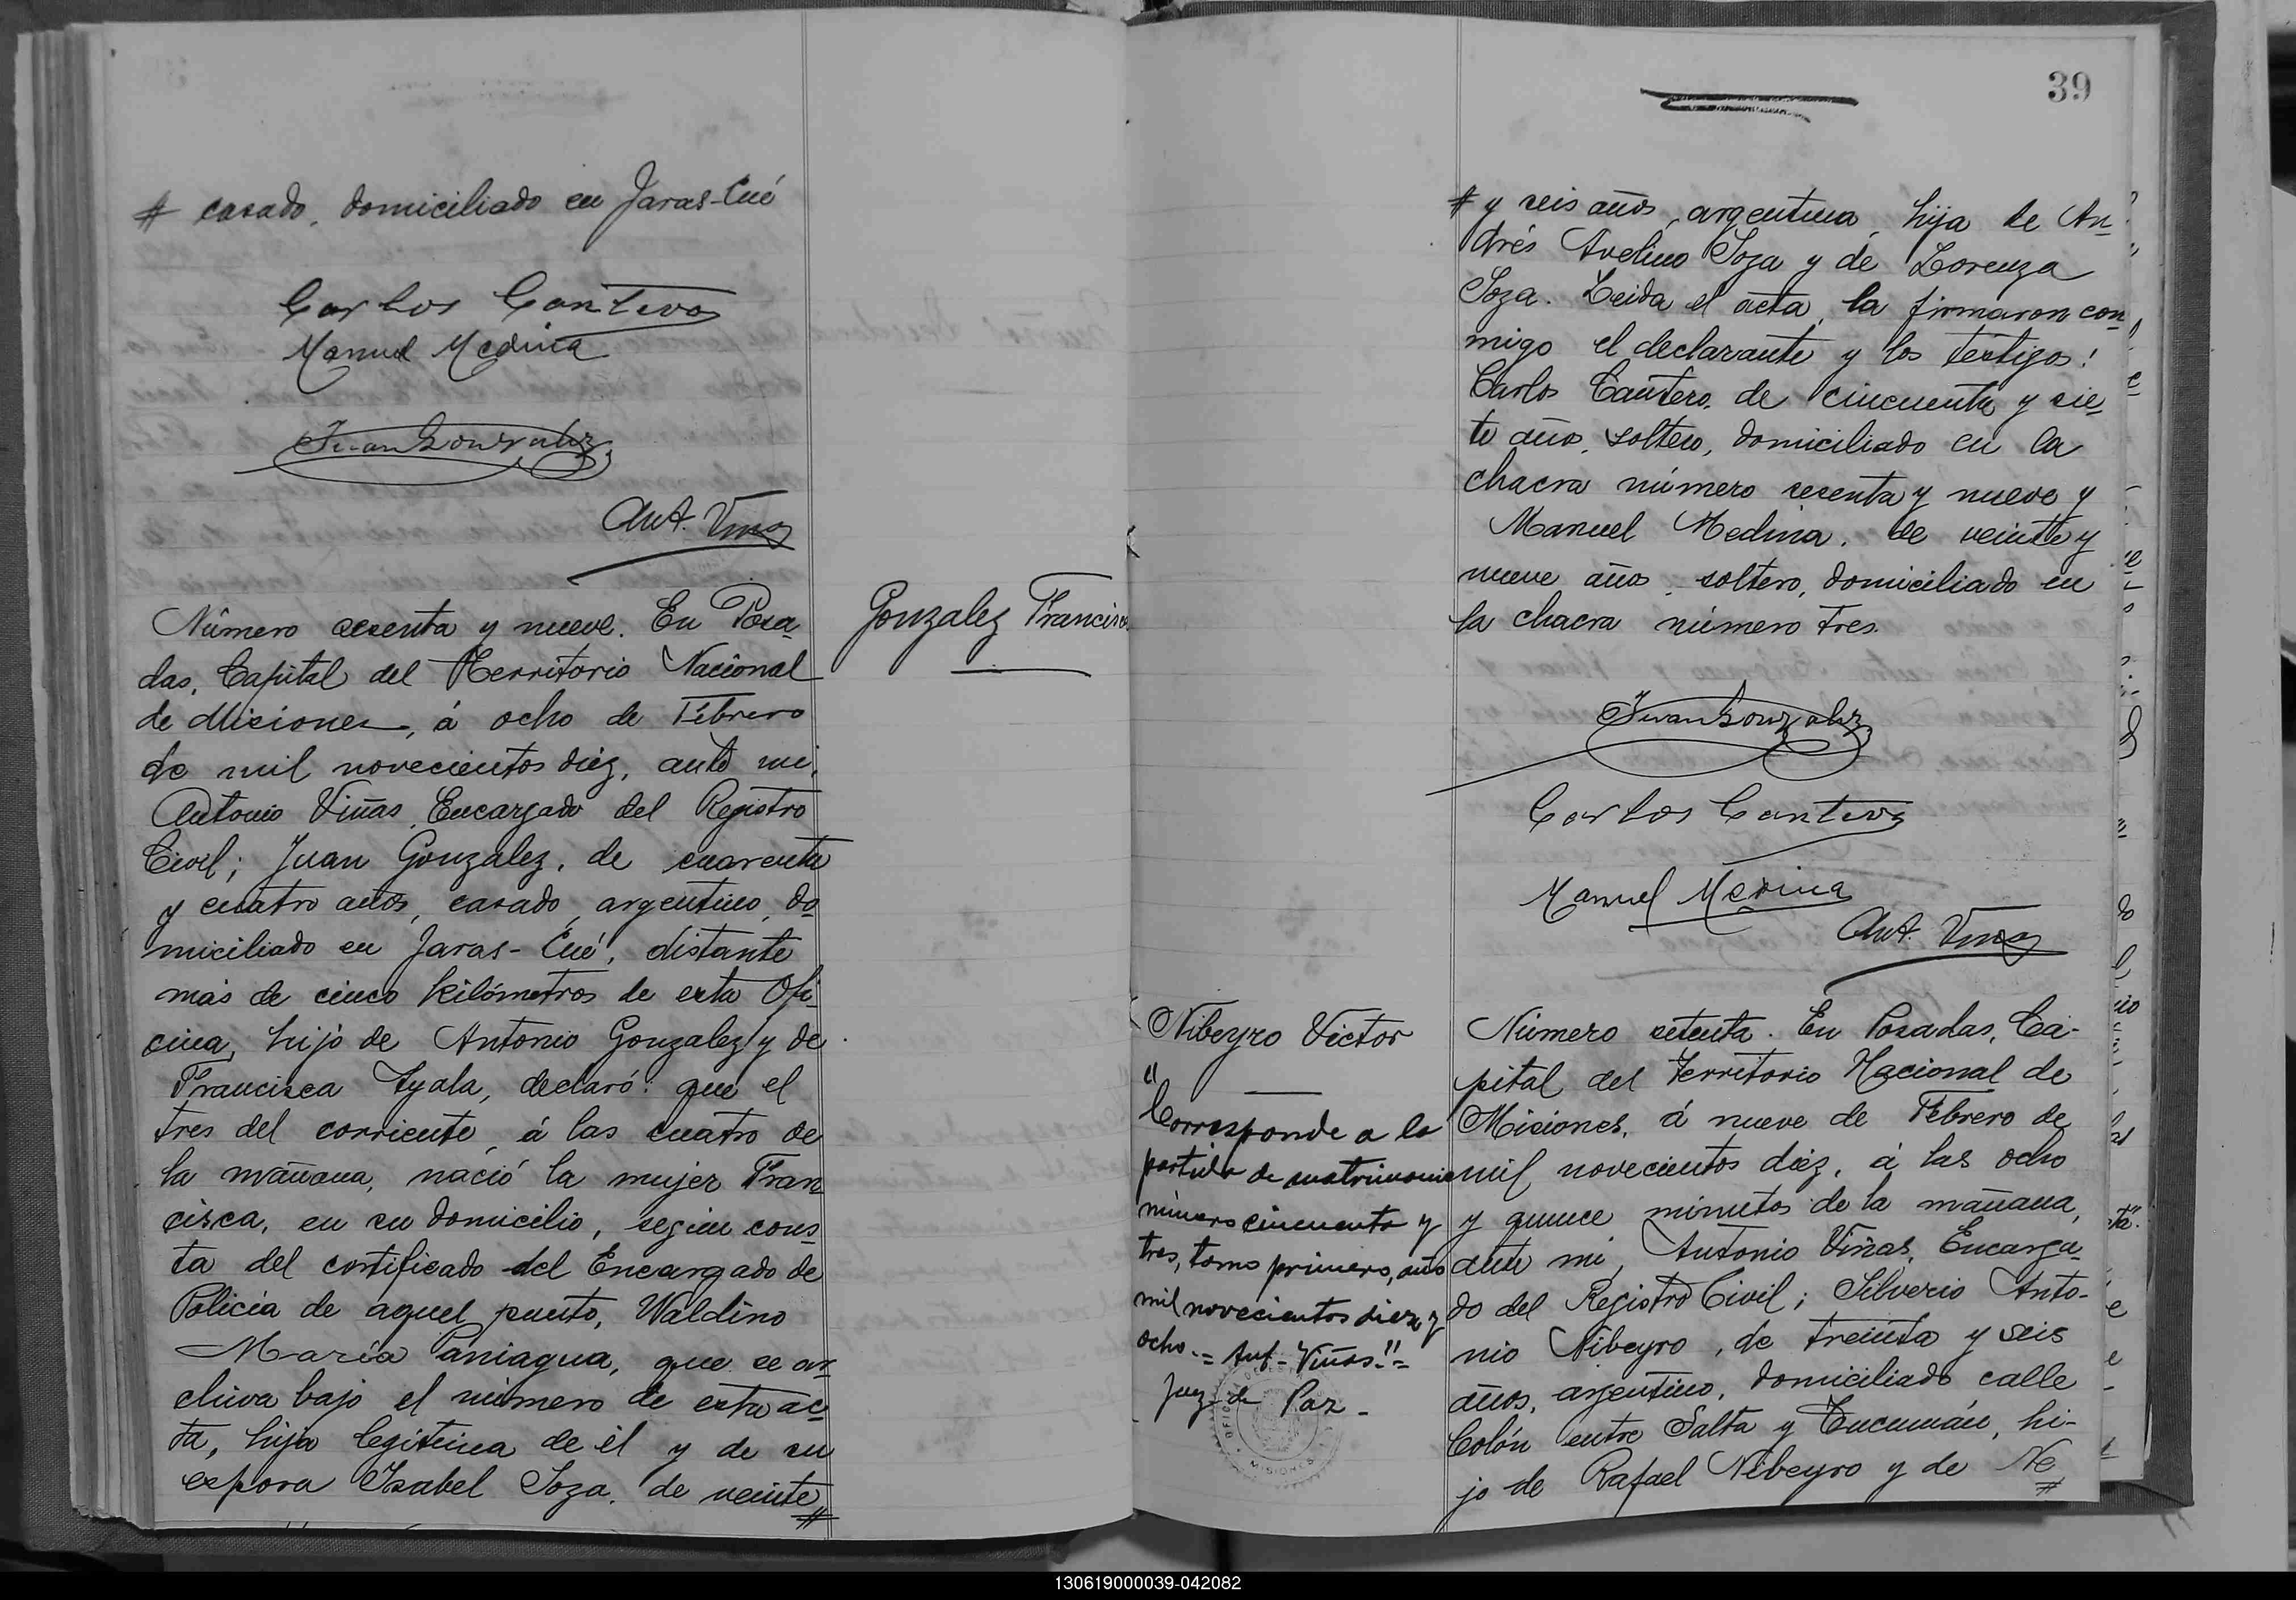 # casado, domiciliado en Jaras-Cué
Carlos Cantero
Manuel Medina
Juan Gonzalez
Ant. Viñas
Número sesenta y nueve. En Posa-
das, Capital del Territorio Nacional
de Misiones, á ocho de Febrero
de mil novecientos diez, ante mi,
Antonio Viñas, Encargado del Registro
Civil; Juan Gonzalez, de cuarenta
y cuatro años, casado, argentino, do-
miciliado en Jaras-Cué, distante
más de cinco kilómetros de esta Ofi-
cina, hijo de Antonio Gonzalez y de
Francisca Ayala, declaró: que el
tres del corriente, á las cuatro de
la mañana, nació la mujer Fran-
cisca, en su domicilio, según cons-
ta del certificado del Encargado de
Policía de aquel punto, Waldino
María Paniagua, que se ar-
chiva bajo el número de esta ac-
ta, hija legítima de él y de su
esposa Isabel Soza, de veinte #
Gonzalez Francisca
39
# y seis años, argentina, hija de An-
drés Avelino Soza y de Lorenza
Soza. Leida el acta, la firmaron con-
migo el declarante y los testigos:
Carlos Cantero, de cincuenta y sie-
te años, soltero, domiciliado en la
chacra número sesenta y nueve y
Manuel Medina, de veinte y
nueve años, soltero, domiciliado en
la chacra número tres.
Juan Gonzalez
Carlos Cantero
Manuel Medina
Ant. Viñas
Nibeyro Victor
"Corresponde a la
partida de matrimonio
número cincuenta y
tres, tomo primero, año
mil novecientos diez y
ocho.= Ant- Viñas."=
Juez de Paz-
MISIONES
Número setenta. En Posadas, Ca-
pital del Territorio Nacional de
Misiones, á nueve de Febrero de
mil novecientos diez, á las ocho
y quince minutos de la mañana,
ante mi, Antonio Viñas, Encarga-
do del Registro Civil; Silverio Anto-
nio Nibeyro, de treinta y seis
años, argentino, domiciliado calle
Colón entre Salta y Tucumán, hi-
jo de Rafael Nibeyro y de Ne #
130619000039-042082